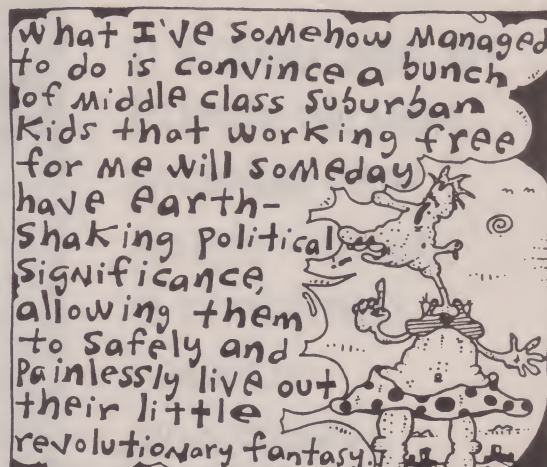 What I've somehow managed
to do is convince a bunch
of middle class suburban
kids that working free
for me will someday
have earth-
shaking political
significance,
allowing them
to safely and
painlessly live out
their little
revolutionary fantasy